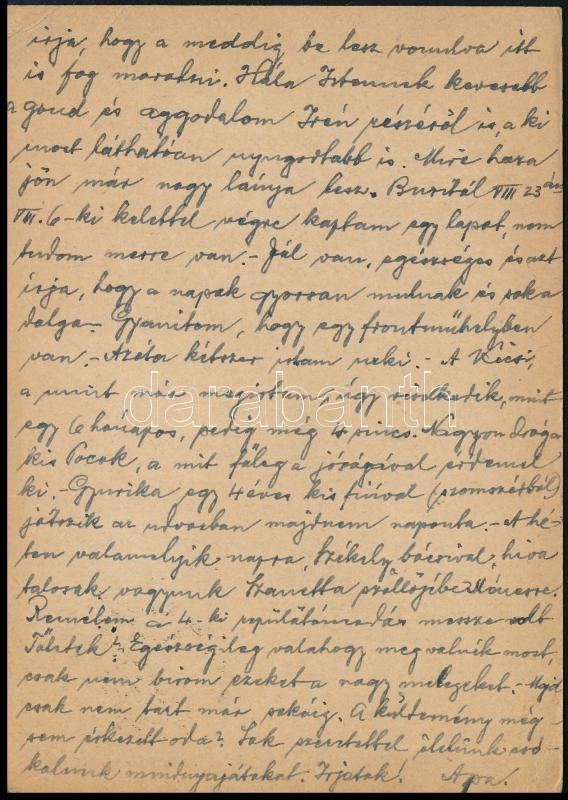 irja, hogy a meddig be lesz vonulva itt
is fog maradni. Hála Istennek kevesebb
a gond és aggodalom Irén részéről is, a ki
most láthatóan nyugodtabb is. Mire haza
jön már nagy lánya lesz. VIII 23 án
VIII. 6-ki kelettel végre kaptam egy lapot, nem
tudom merre van. - Jól van, egészséges és azt
írja, hogy a napok gyorsan mulnak és sok a
dolga. - Gyanitom, hogy egy frontműhelyben
van. - Azóta kétszer irtam neki. - A Kicsi,
a mint már megirtam, úgy viselkedik, mint
egy 6 hónapos, pedig még 4 sincs. Nagyon drága
kis Pocok, a mit főleg a jóságával érdemel
ki. - Gyurika egy 4 éves kis fiúval (szomszédból)
játszik az udvarban majdnem naponta. - A hé-
ten valamelyik napra, Székely bácsival, hiva
talosak vagyunk szőllőjébe
Remélem a 4-ki repülőtámadás messze volt
Tőletek? Egészségileg valahogy meg volnék most,
csak nem birom ezeket a nagy melegeket. - Majd
csak nem tart már sokáig. A küldemény még-
sem érkezett oda? Sok szeretettel ölelünk cso-
kolunk mindnyájatokat. Irjatok! Apa.
darabanth